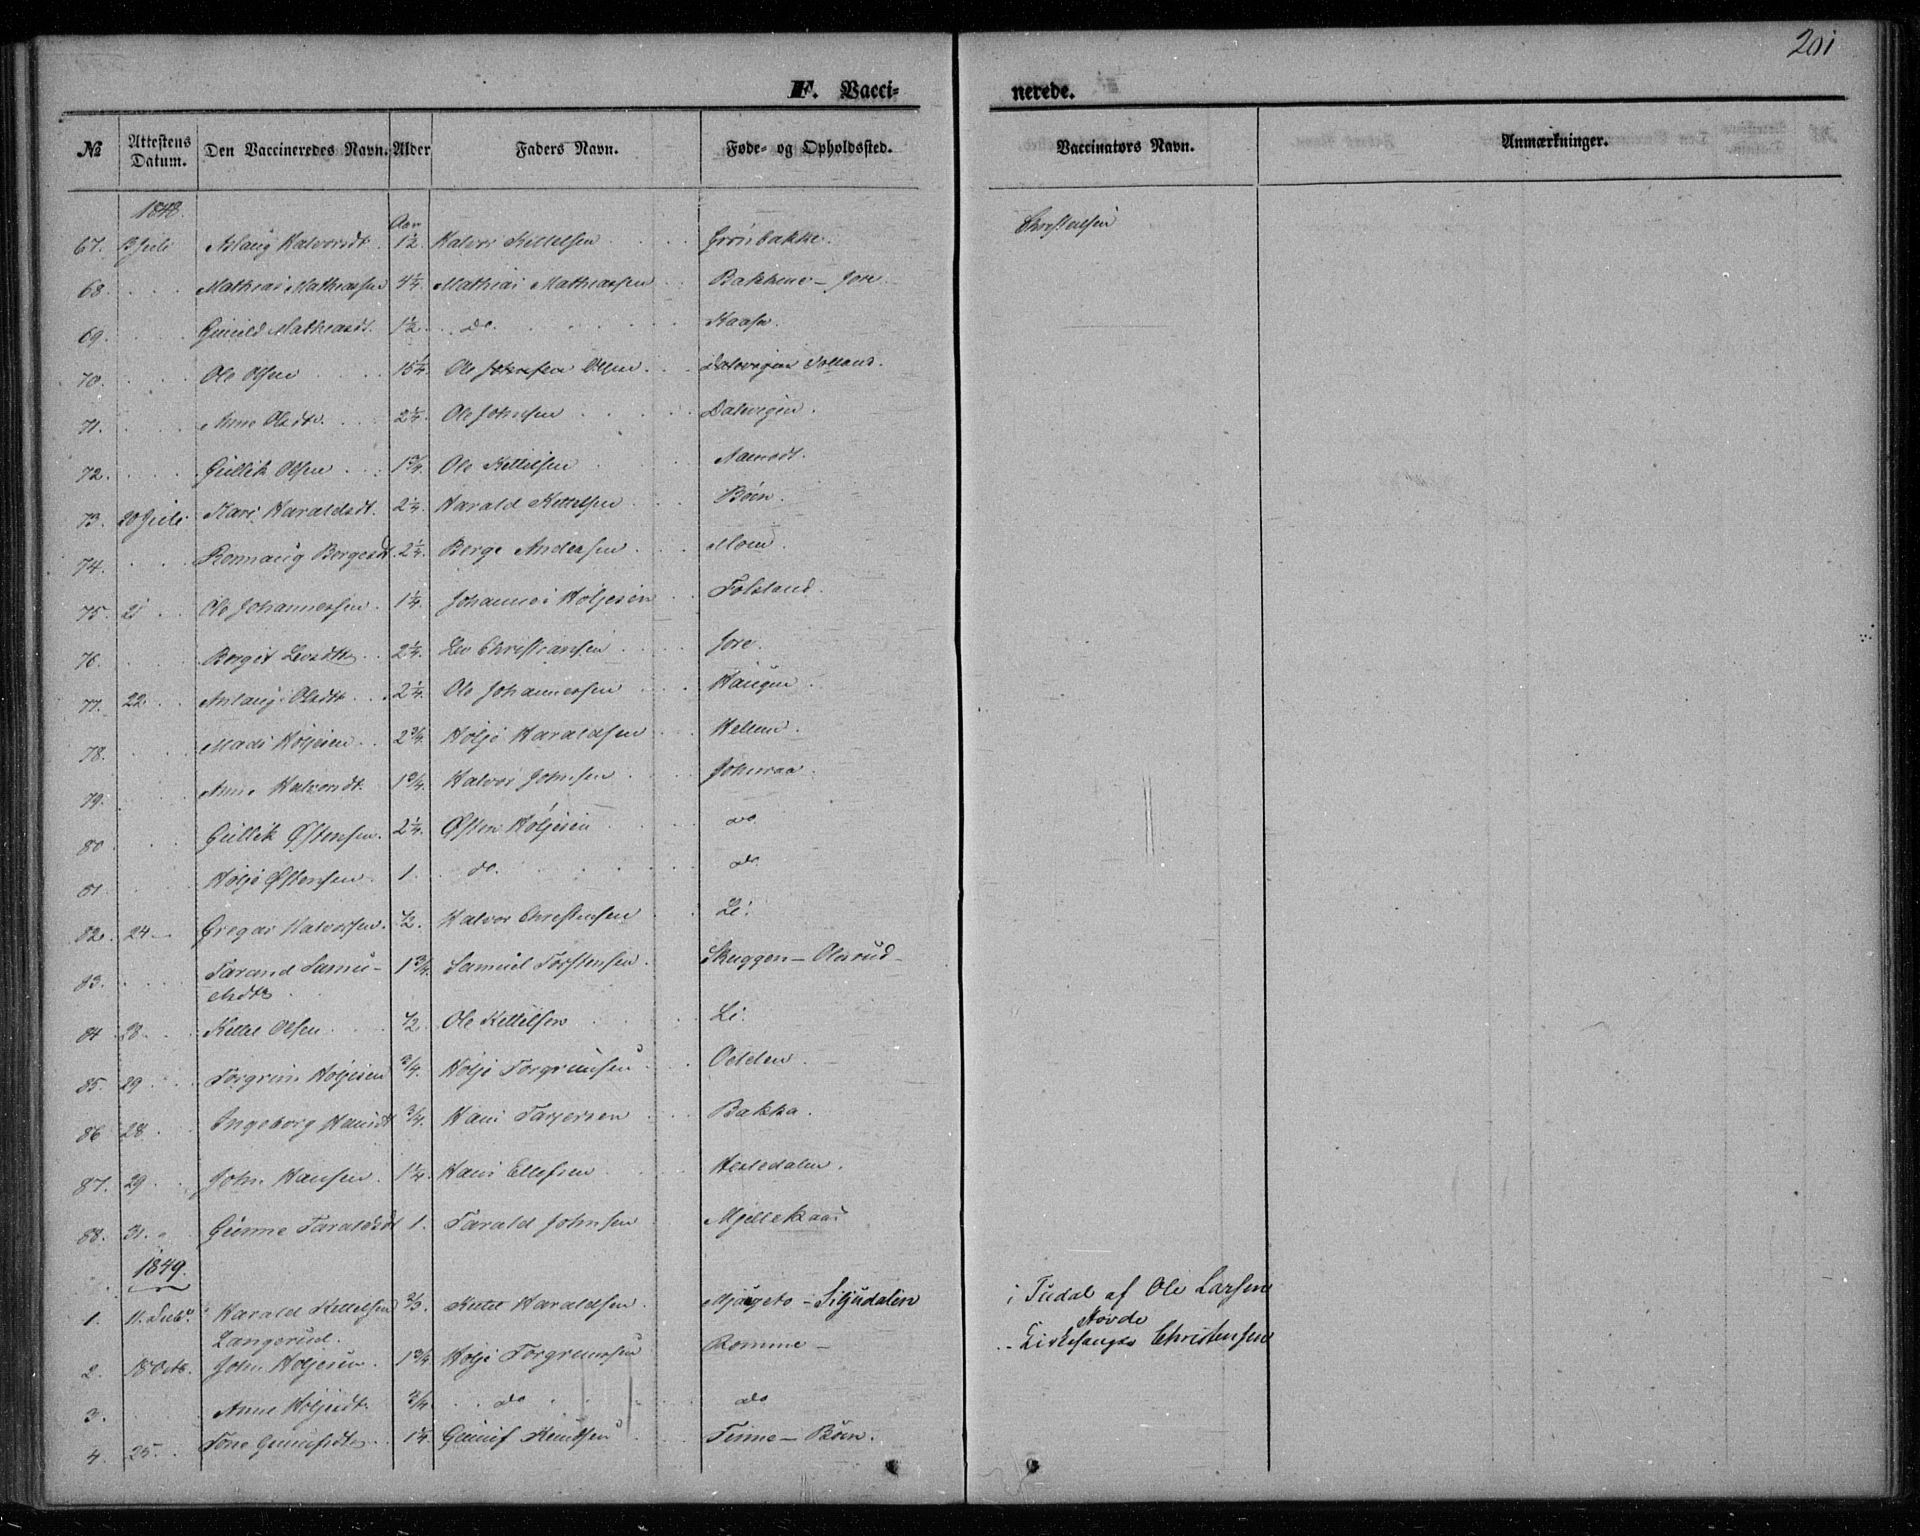 201
F. Vacci-
nerede.
№ Attestens Datum. Den Vaccineredes Navn. Alder Faders Navn. Føde- og Opholdssted. Vaccinators Navn. Anmærkninger.
1848.
Aar
67. 3 Juli Aslaug Halvorsdt. 1½ Halvor Kittelsen Grønbakke. Christensen
68. Mathias Mathiassen 4¼ Mathias Mathiassen Bakkene - Jore
69. Gunild Mathiasdt. 1½ do. Kaasa
70. Ole Olsen 15¼ Ole Johnsen Olsen Dalsvegen
71. Anne Olsdtr. 2¼ Ole Johnsen Dalsvegen.
72. Gullik Olsen 1¾ Ole Kittelsen Aamodt.
73. 20 Juli Kari Haraldsdt. 2¼ Harald Kittelsen Bøen.
74. Ronnaug Borgesdt. 2¼ Borge Andersen Moen.
75. 21 Ole Johannessen 1¼ Johannes Holjesen Folseland.
76. Bergit Levsdtr 2¼ Lev Christiansen Jore.
77. 22 Aslaug Olsdtr 2¼ Ole Johannessen Haugen
78. Mads Holjesen 2¾ Holje Haraldsen Hellem.
79. Anne Halvorsdt. 1¾ Halvor Johnsen Johnraa.
80. Gullik Østensen. 2¼ Østen Holjesen do
81. Holje Østensen. 1. do. do.
82. 24 Gregar Halvorsen. ½. Halvor Christensen Li.
83. Tarand Samu- 1¾ Samuel Torstensen Skuggen - Olesrud -
elsdtr
84. 28 Kittel Olsen ½. Ole Kittelsen Li.
85. 29 Torgrim Holjesen ¾. Holje Torgrimsen Odden.
86 28 Ingeborg Hansdt ¾. Hans Tarjersen Bakka.
87. 29 John Hansen. 1¼. Hans Ellefsen Hestedalen.
88. 31. Gunne Taraldsdt 1. Tarald Johnsen Mjellekaas
1849.
1. 11. Febr. Harald Kittelsen ⅔. Kittel Haraldsen. - Siljudalen i Tudal af Ole Larsen
Hovde
Langerud.
2. 18 Octb. John Holjesen. 1¾ Holje Torgrimsen Romme - Kirkesanger Christensen
3. Anne Holjesdt. ¾. do do
4. 25. Tone Gunufsdtr 1¼. Gunuf Knudsen Tinne - Bøen.